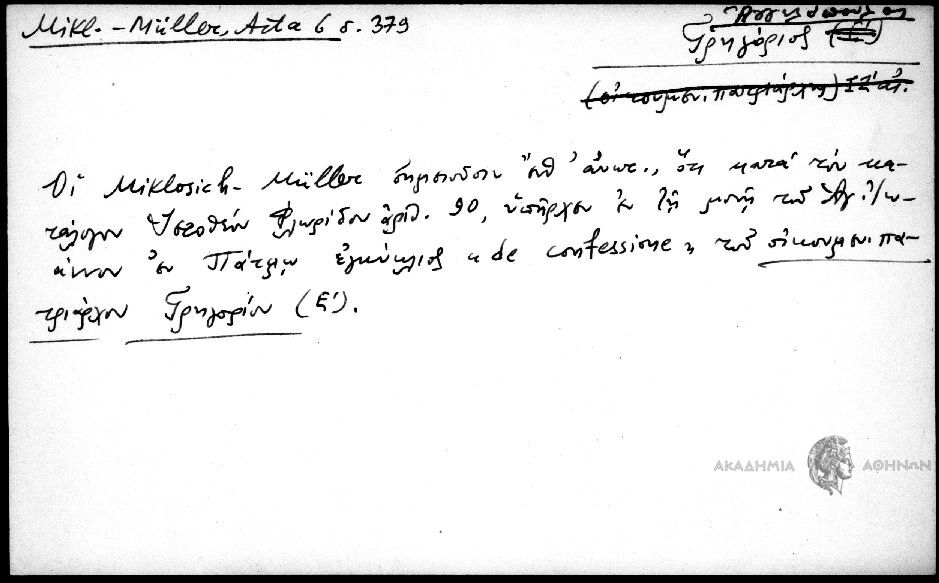 Mikl.-Müller, Acta 6 σ. 379
Ἀγγελόπουλος
Γρηγόριος (Ϛ')
(οἰκουμεν. πατριάρχης) ΙΖ' αἰ.
Οἱ Miklosich-Müller σημειοῦσιν ἔνθ' ἀνωτ., ὅτι κατὰ τὸν κα-
τάλογον Ἱεροθέου Φλωρίδου ἀριθ. 90, ὑπῆρχεν ἐν τῇ μονῇ τοῦ Ἁγ. Ἰω-
άννου ἐν Πάτμῳ ἐγκύκλιος « de confessione » τοῦ οἰκουμεν. πα-
τριάρχου Γρηγορίου (Ϛ').
ΑΚΑΔΗΜΙΑ ΑΘΗΝΩΝ